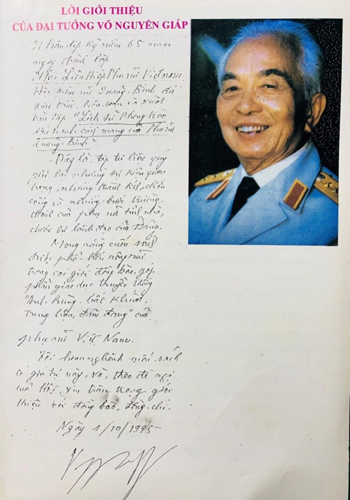 LỜI GIỚI THIỆU
CỦA ĐẠI TƯỚNG VÕ NGUYÊN GIÁP
Nhân dịp kỷ niệm 65 năm
ngày thành lập
Hội Liên Hiệp Phụ nữ Việt Nam,
Hội Phụ nữ Quảng Bình đã
sưu tầm, biên soạn và xuất
bản tập "Lịch sử Phong trào
cách mạng của Phụ nữ
Quảng Bình"
Đây là tập tư liệu quý
ghi lại những sự kiện quan
trọng, những thành tích, chiến
công và những bước trưởng
thành của phụ nữ tỉnh nhà,
dưới sự lãnh đạo của Đảng.
Mong rằng cuốn sách
được phổ biến rộng rãi
trong các giới đồng bào, góp
phần giáo dục truyền thống
"Anh hùng, bất khuất,
trung hậu, đảm đang" của
phụ nữ Việt Nam.
Tôi hoan nghênh cuốn sách
có giá trị này, và, theo đề nghị
của Hội, xin trân trọng giới
thiệu với đồng bào, đồng chí.
Ngày 1/10/1995